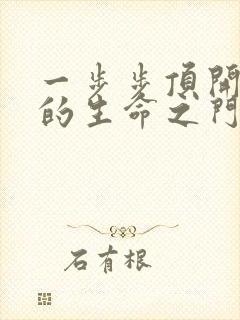 一步步頂開
的生命之門
石有根